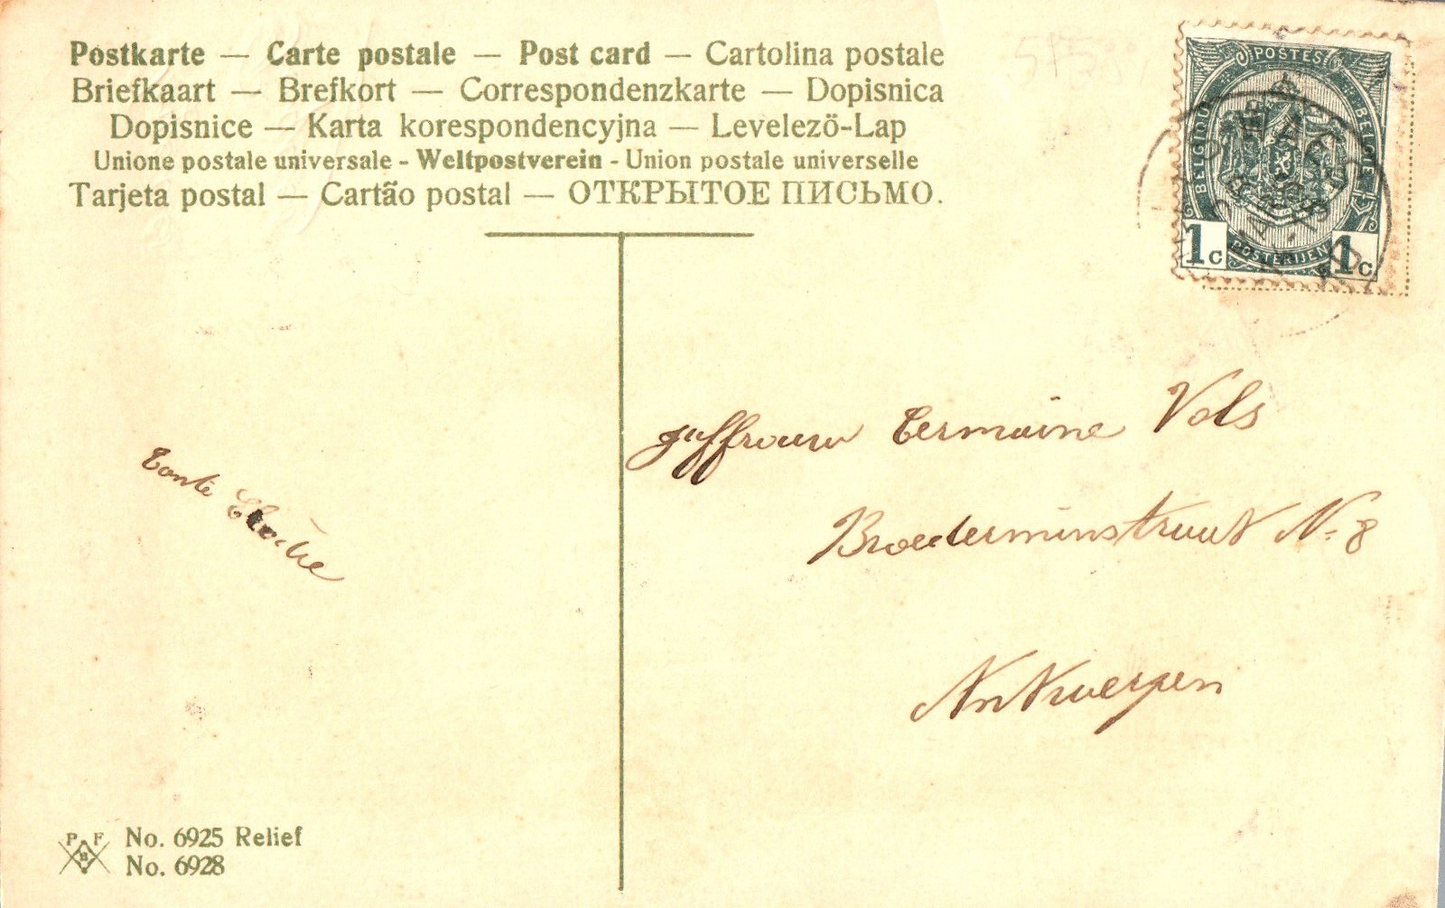 Postkarte — Carte postale — Post card — Cartolina postale
Briefkaart — Brefkort — Correspondenzkarte — Dopisnica
Dopisnice — Karta korespondencyjna — Levelezö-Lap
Unione postale universale - Weltpostverein - Union postale universelle
Tarjeta postal — Cartão postal — ОТКРЫТОЕ ПИСЬМО.
POSTES
BELGIQUE BELGIE
POSTERIJEN
1c 1c
Juffrouw Germaine Vols
Broederminstraat N. 8
Antwerpen
Tante
P F
B
No. 6925 Relief
No. 6928